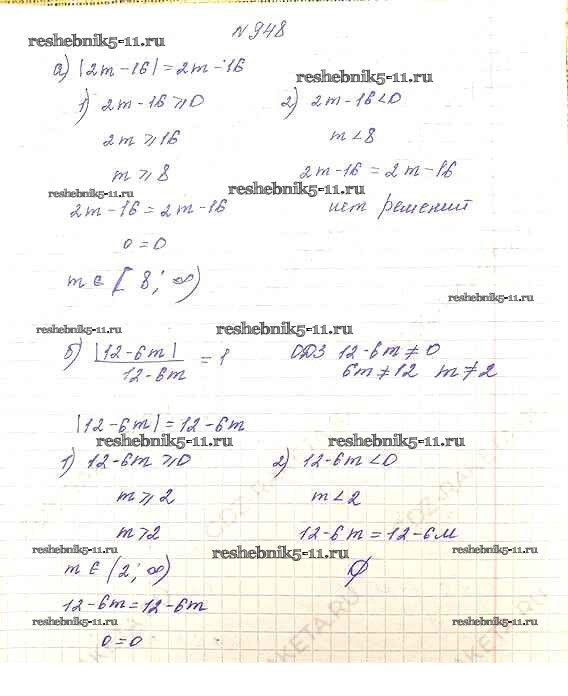 N 948
reshebnik5-11.ru
а) |2m-16| = 2m-16
reshebnik5-11.ru
1) 2m-16 ⩾ 0
2m ⩾ 16
m ⩾ 8
reshebnik5-11.ru
2m-16 = 2m-16
0 = 0
m ∈ [8; ∞)
2) 2m-16 < 0
m < 8
2m-16 = 2m-16
reshebnik5-11.ru
нет решений
reshebnik5-11.ru
reshebnik5-11.ru
reshebnik5-11.ru
б) |12-6m| / 12-6m = 1
ОДЗ 12-6m ≠ 0
6m ≠ 12 m ≠ 2
|12-6m| = 12-6m
reshebnik5-11.ru
reshebnik5-11.ru
1) 12-6m ⩾ 0
m ⩾ 2
m > 2
reshebnik5-11.ru
m ∈ (2; ∞)
12-6m = 12-6m
reshebnik5-11.ru
0 = 0
2) 12-6m < 0
m < 2
12-6m = 12-6м
reshebnik5-11.ru
reshebnik5-11.ru
∅
reshebnik5-11.ru